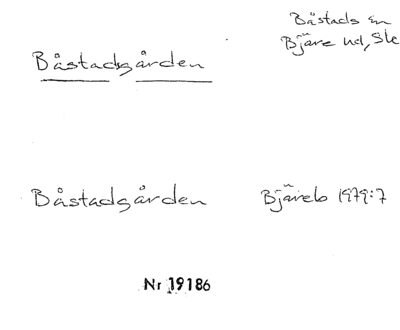 Båstads sn
Båstadsgården
Bjäre hd, Sk
Båstadgården Bjäreb 1979:7
Nr 19186